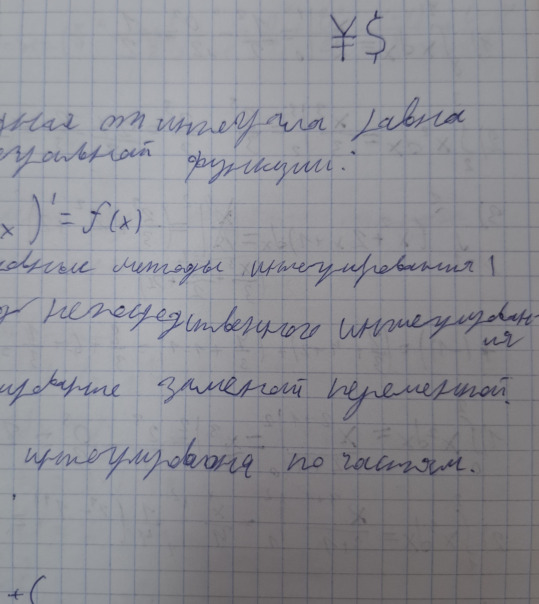 ¥$
дная от интеграла равна
гральной функции.
x )' = f(x)
овные методы интегрирования!
д непосредственного интегрирован-
ия
ирование заменой переменной.
интегрирования по частям.
+(